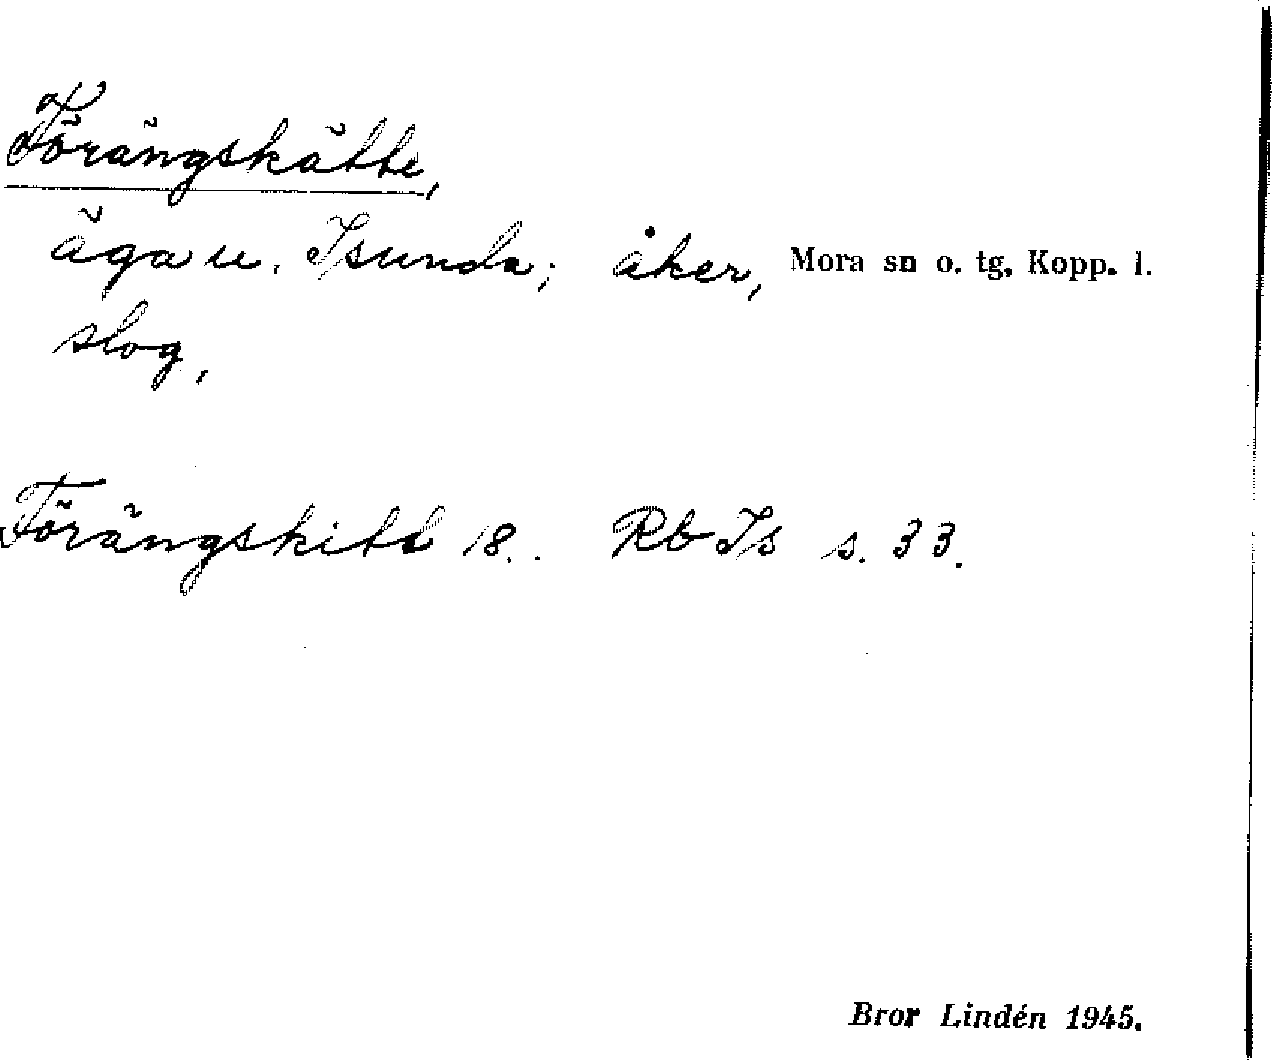 Förängskätte,
äga u. Isunda; åker, Mora sn o. tg. Kopp. l.
slog,
Förängskitt 18.. Rb Is s. 33.
Bror Lindén 1945.